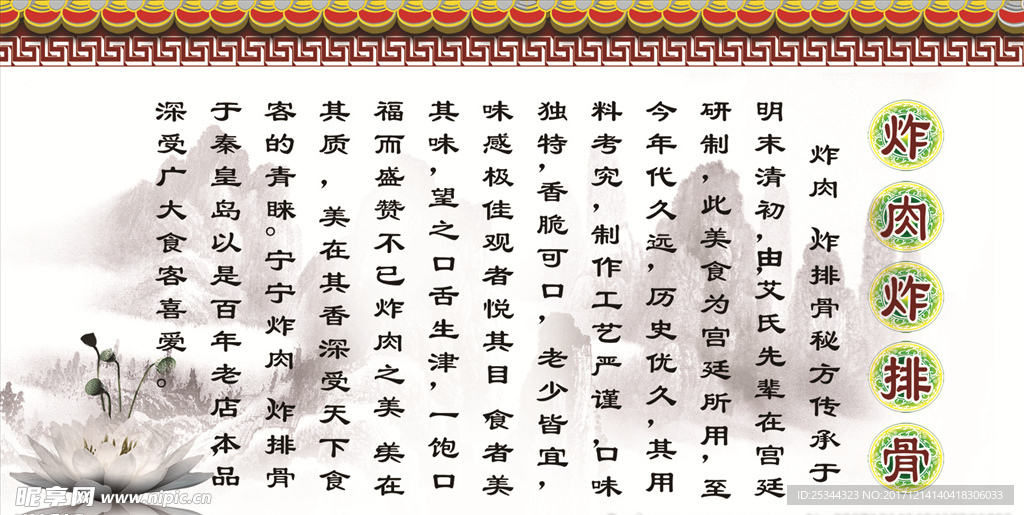 炸肉炸排骨
炸肉、炸排骨秘方传承于
明末清初,由艾氏先辈在宫廷
研制,此美食为宫廷所用,至
今年代久远,历史优久,其用
料考究,制作工艺严谨,口味
独特,香脆可口,老少皆宜,
味感极佳观者悦其目 食者美
其味,望之口舌生津,一饱口
福而盛赞不已炸肉之美 美在
其质,美在其香深受天下食
客的青睐。宁宁炸肉、炸排骨
于秦皇岛以是百年老店,本品
深受广大食客喜爱。
昵享网 www.nipic.cn
ID:25344323 NO:20171214140418306033